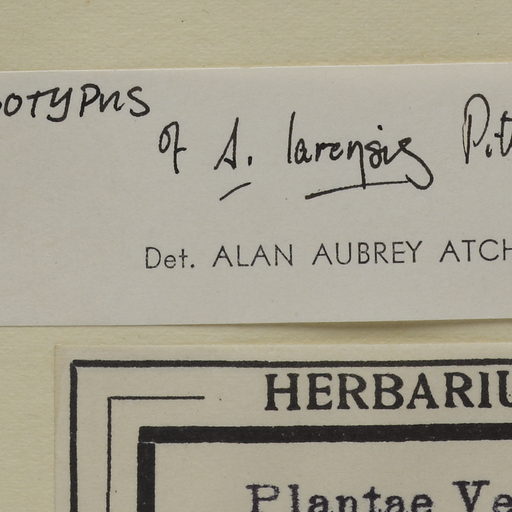 OTYPUS
of S. larensis Pit
Det. ALAN AUBREY ATCH
HERBARIU
Plantae Ve